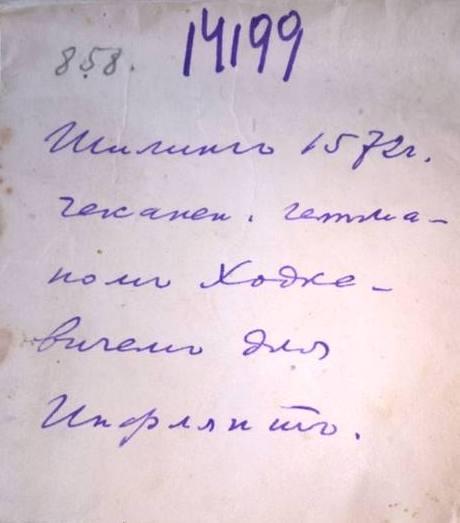 858. 14199
Шилингъ 1572г.
чеканен. гетма-
номъ Ходке-
вичемъ для
Инфлянтъ.